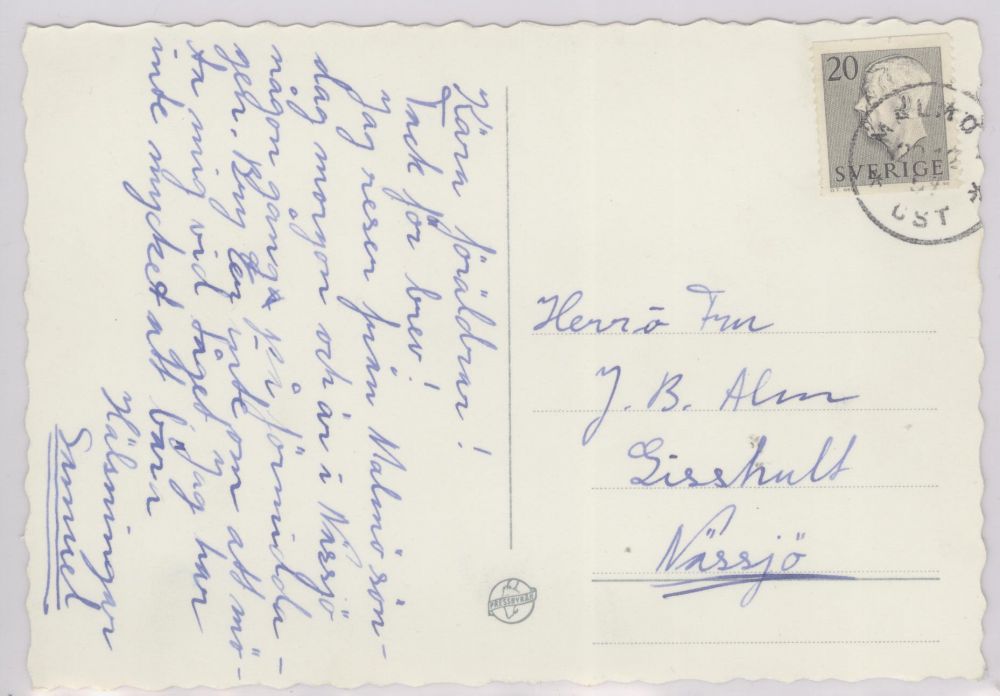 Kära föräldrar!
Tack för brev!
Jag reser från Malmö sön-
dag morgon och är i Nässjö
någon gång på förmidda-
gen. Bry Er inte om att mö-
ta mig vid tåget. Jag har
inte mycket att bära
Hälsningar
Samuel
20
SVERIGE
MALMÖ
ÖST
Herr o Fru
J. B. Alm
Gisshult
Nässjö
PRESSBYRÅN